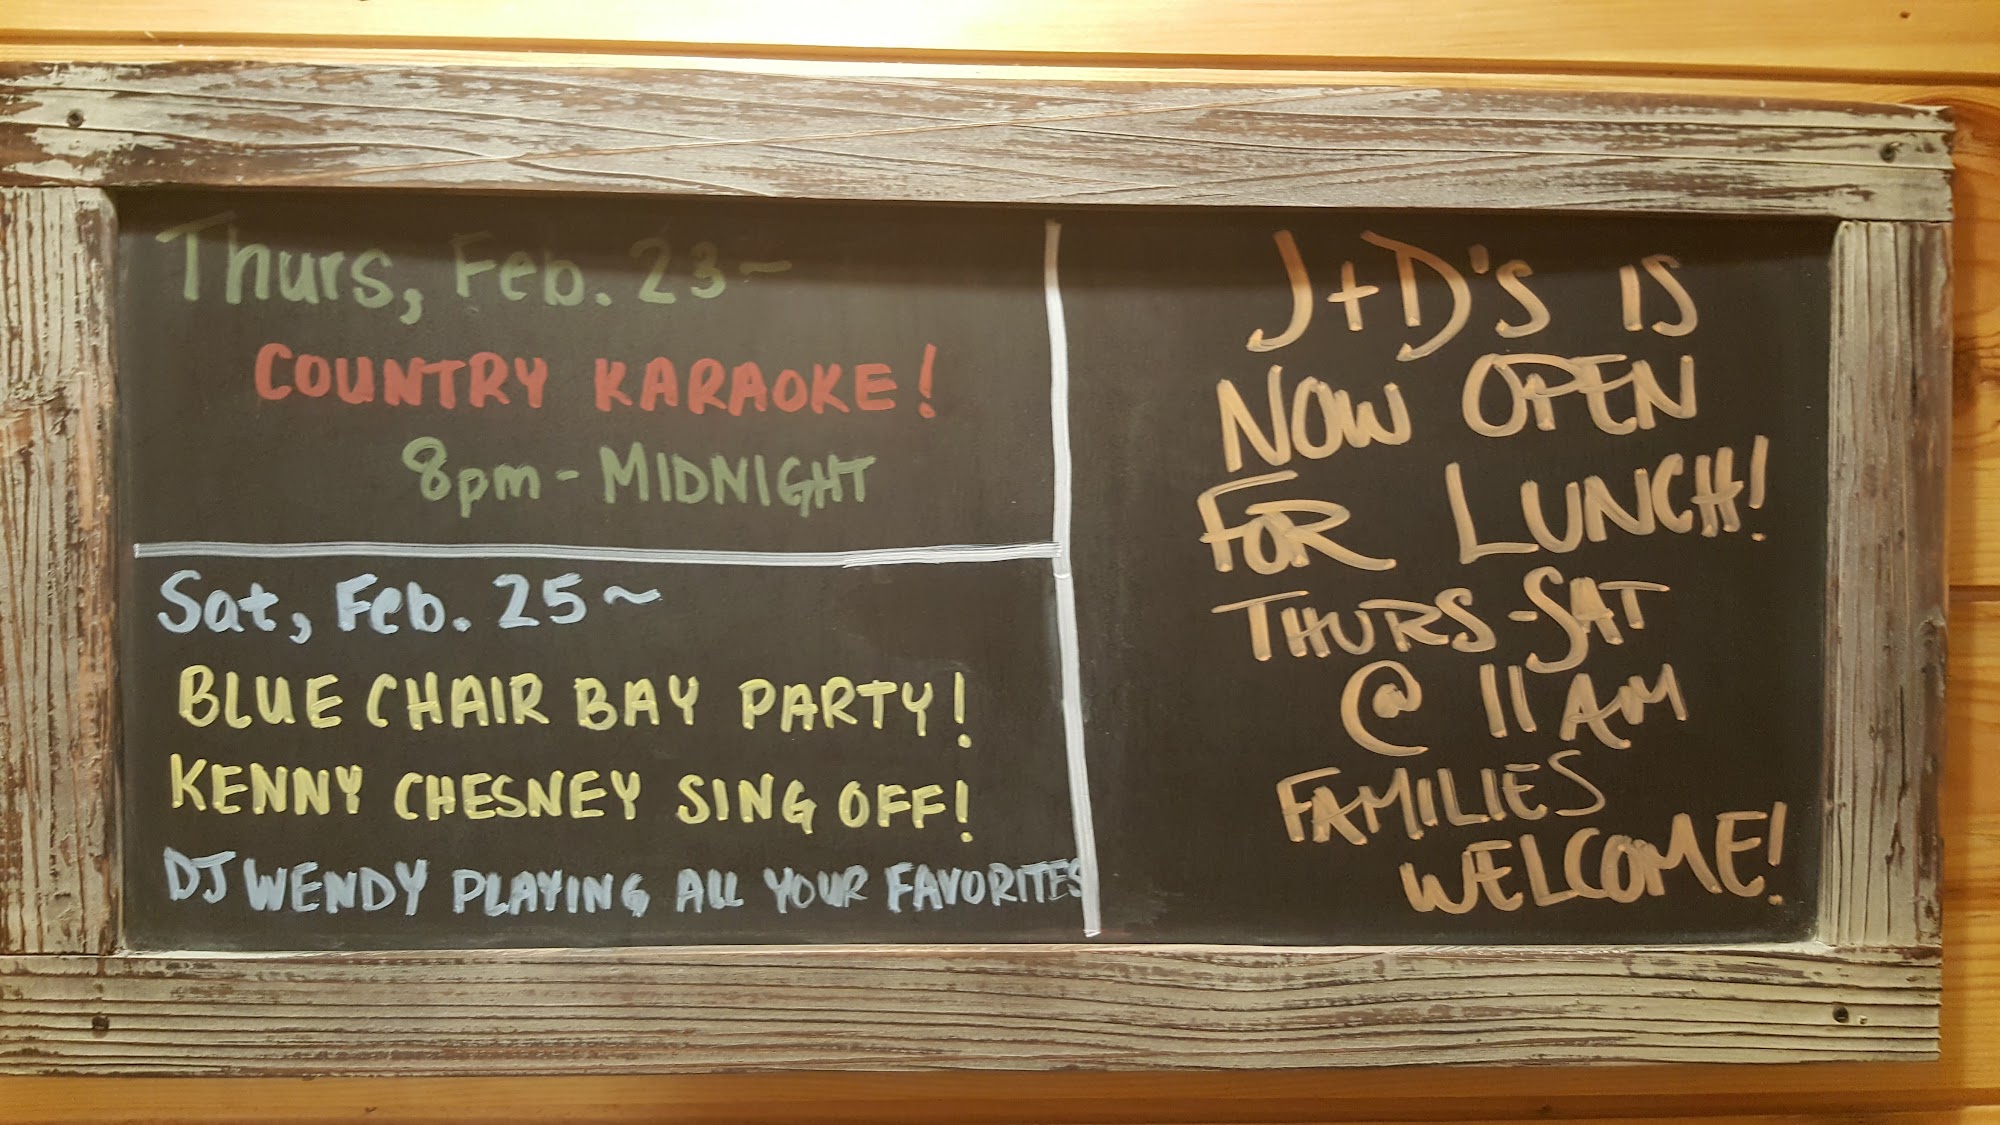 Thurs, Feb. 23~
COUNTRY KARAOKE!
8pm - MIDNIGHT
Sat, Feb. 25~
BLUE CHAIR BAY PARTY!
KENNY CHESNEY SING OFF!
DJ WENDY PLAYING ALL YOUR FAVORITES
J+D's IS
NOW OPEN
FOR LUNCH!
THURS-SAT
@ 11AM
FAMILIES
WELCOME!